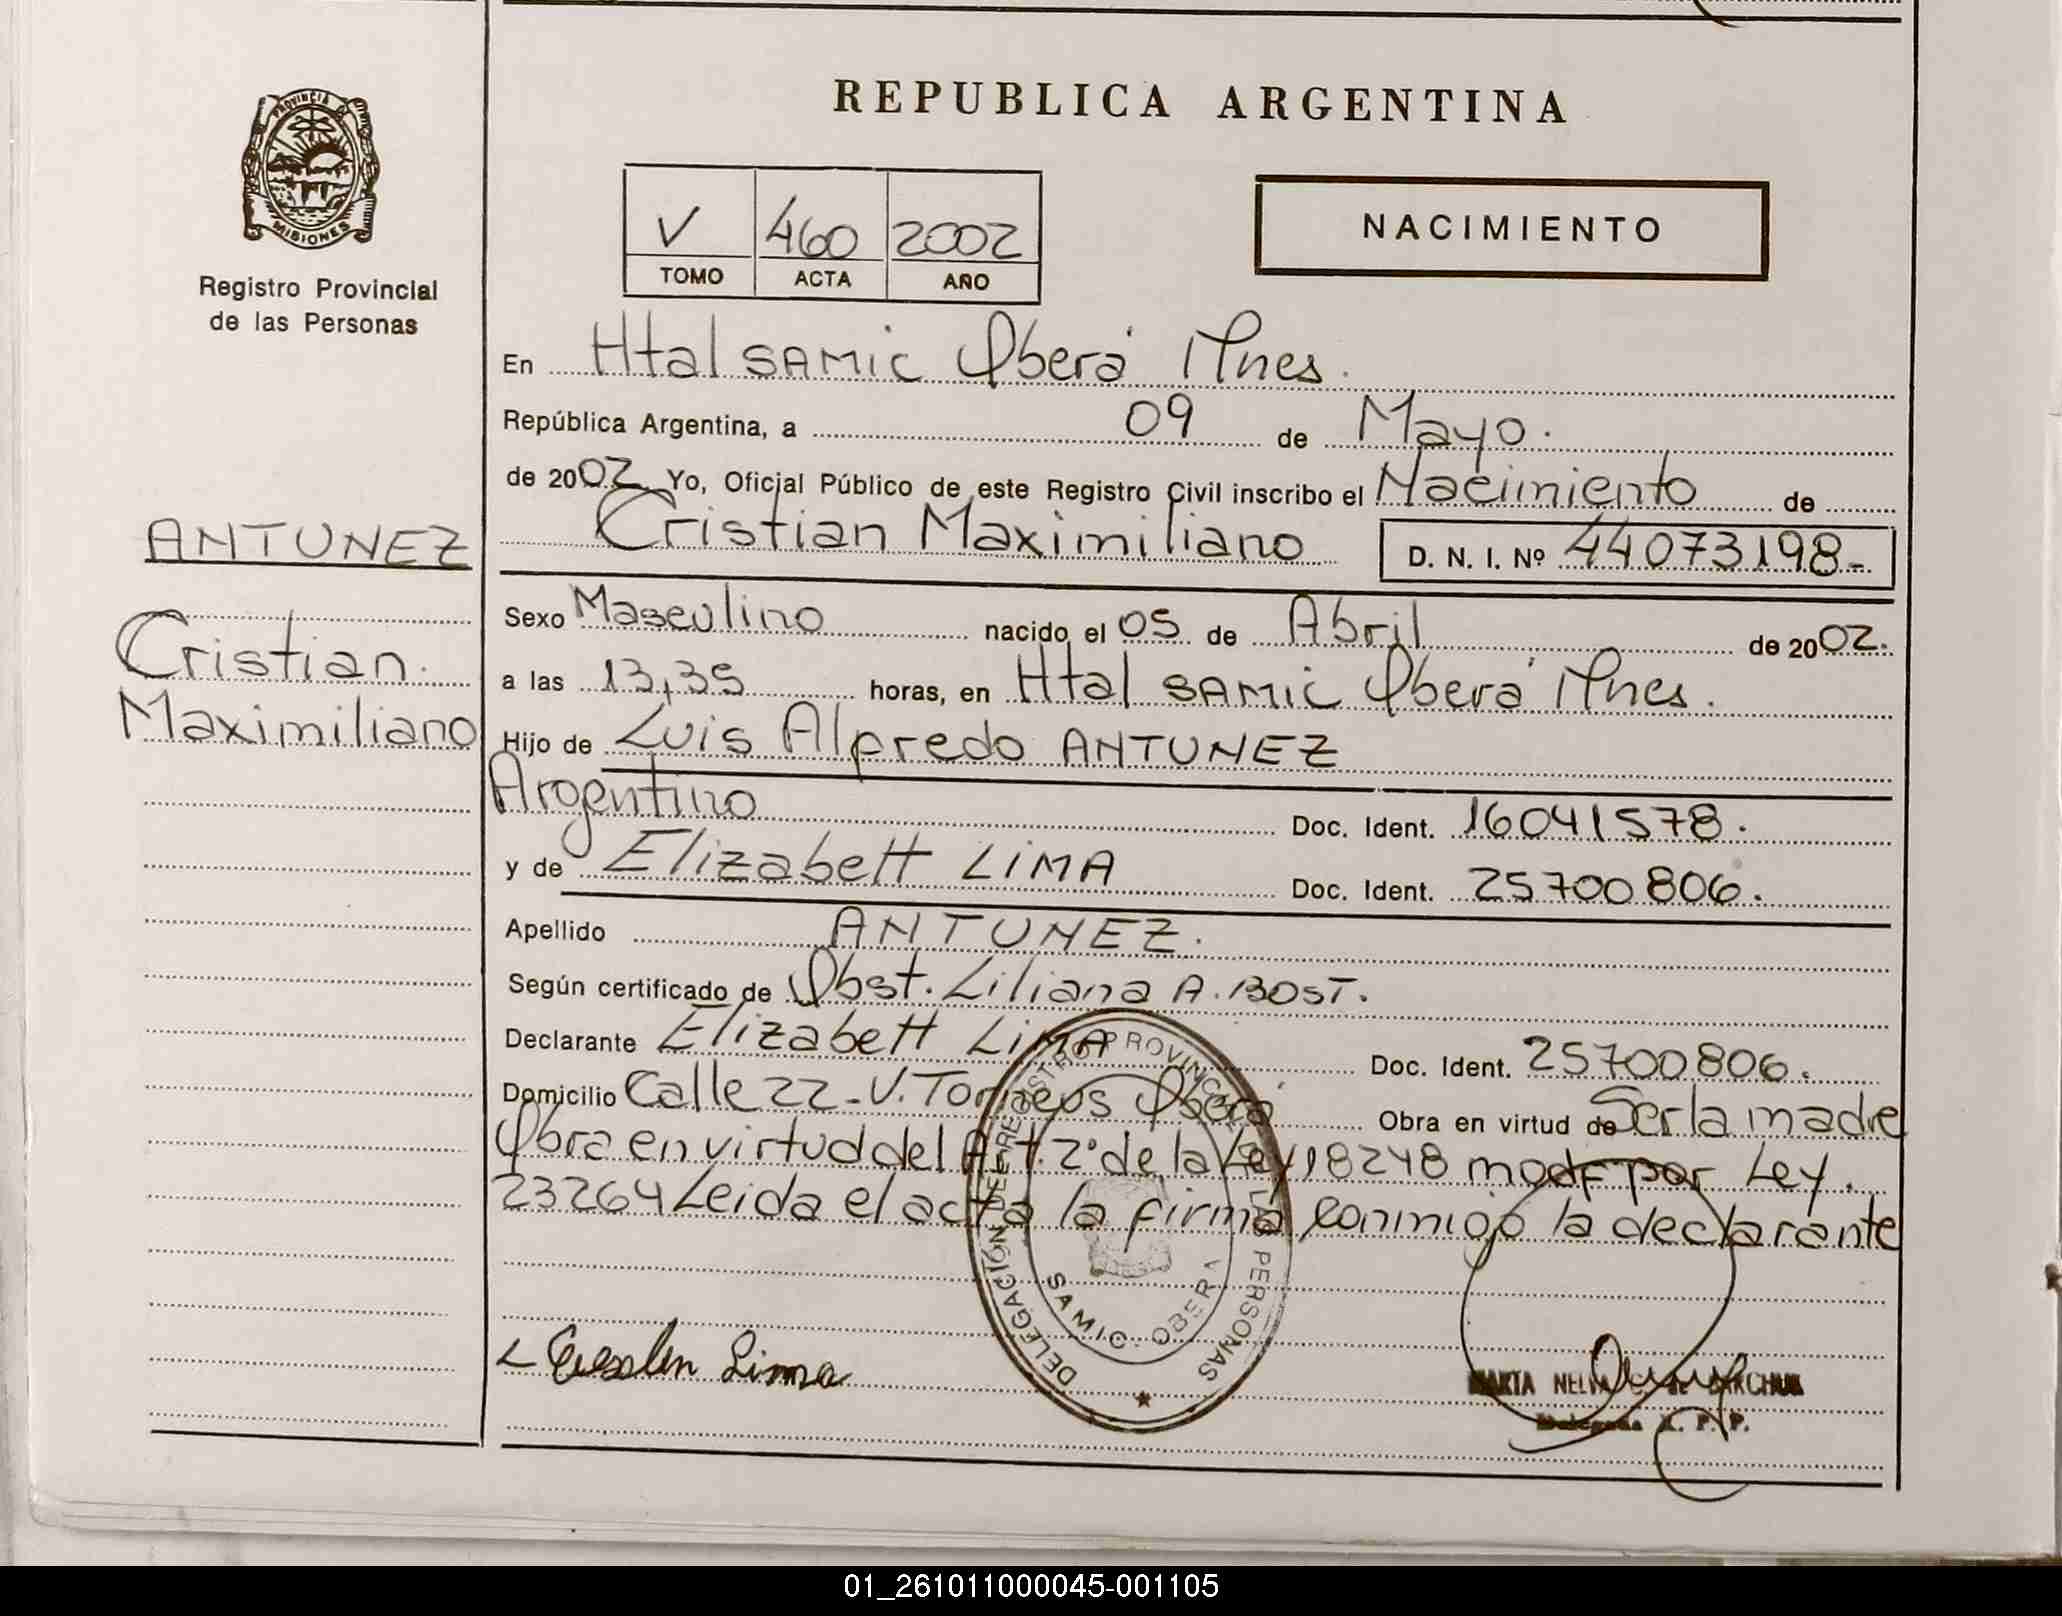 REPUBLICA ARGENTINA
PROVINCIA DE
MISIONES
Registro Provincial
de las Personas
V 460 2002
TOMO ACTA AÑO
NACIMIENTO
En Htal SAMIC Oberá Mnes.
República Argentina, a 09 de Mayo.
de 2002 Yo, Oficial Público de este Registro Civil inscribo el Nacimiento de
Cristian Maximiliano D. N. I. Nº 44073198-
ANTUNEZ
Cristian.
Maximiliano
Sexo Masculino nacido el 05 de Abril de 2002.
a las 13,35 horas, en Htal SAMIC Oberá Mnes.
Hijo de Luis Alfredo ANTUNEZ
Argentino Doc. Ident. 16041578.
y de Elizabett LIMA Doc. Ident. 25700806.
Apellido ANTUNEZ.
Según certificado de Obst. Liliana A. BOST.
Declarante Elizabett LIMA Doc. Ident. 25700806.
Domicilio Calle 22-V. Torneos Oberá Obra en virtud de Ser la madre
Obra en virtud del Art. 2º de la Ley 18248 modf por Ley.
23264 Leida el acta la firma conmigo la declarante
DELEGACIÓN DEL REGISTRO PROVINCIAL PERSONAS
SAMIC. OBERA
Lima
MARTA NELVA
Delegada R. P. P.
01_261011000045-001105